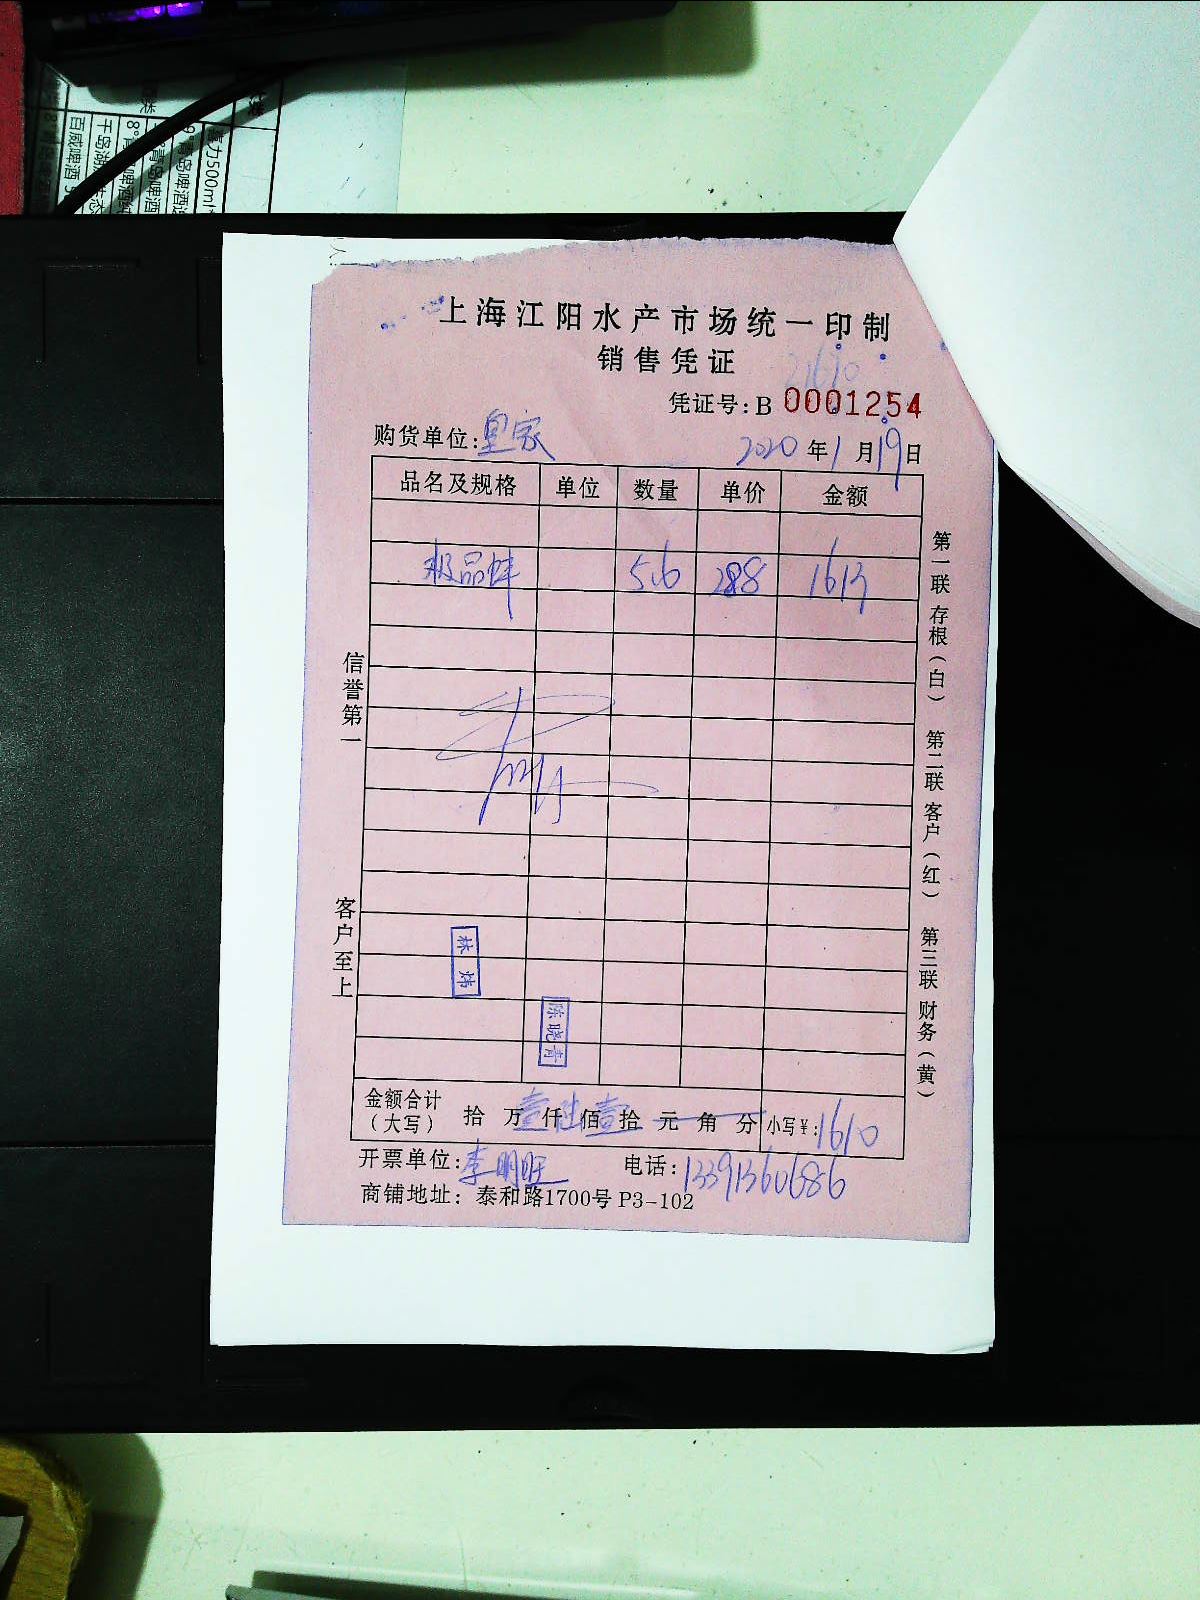 上海江阳水产市场统一印制
销售凭证
凭证号: B 0001254
购货单位: 皇家 2020 年 1 月 19 日
品名及规格 单位 数量 单价 金额
极品蚌 5.6 288 1613
信誉第一
客户至上
第一联 存根(白) 第二联 客户(红) 第三联 财务(黄)
林炜
陈晓青
金额合计(大写) 拾 万 壹 仟 陆 佰 壹 拾 元 角 分 小写¥: 1610
开票单位: 李明旺 电话: 13391360686
商铺地址: 泰和路1700号 P3-102
喜力500ml
青岛啤酒
百威啤酒
千岛湖